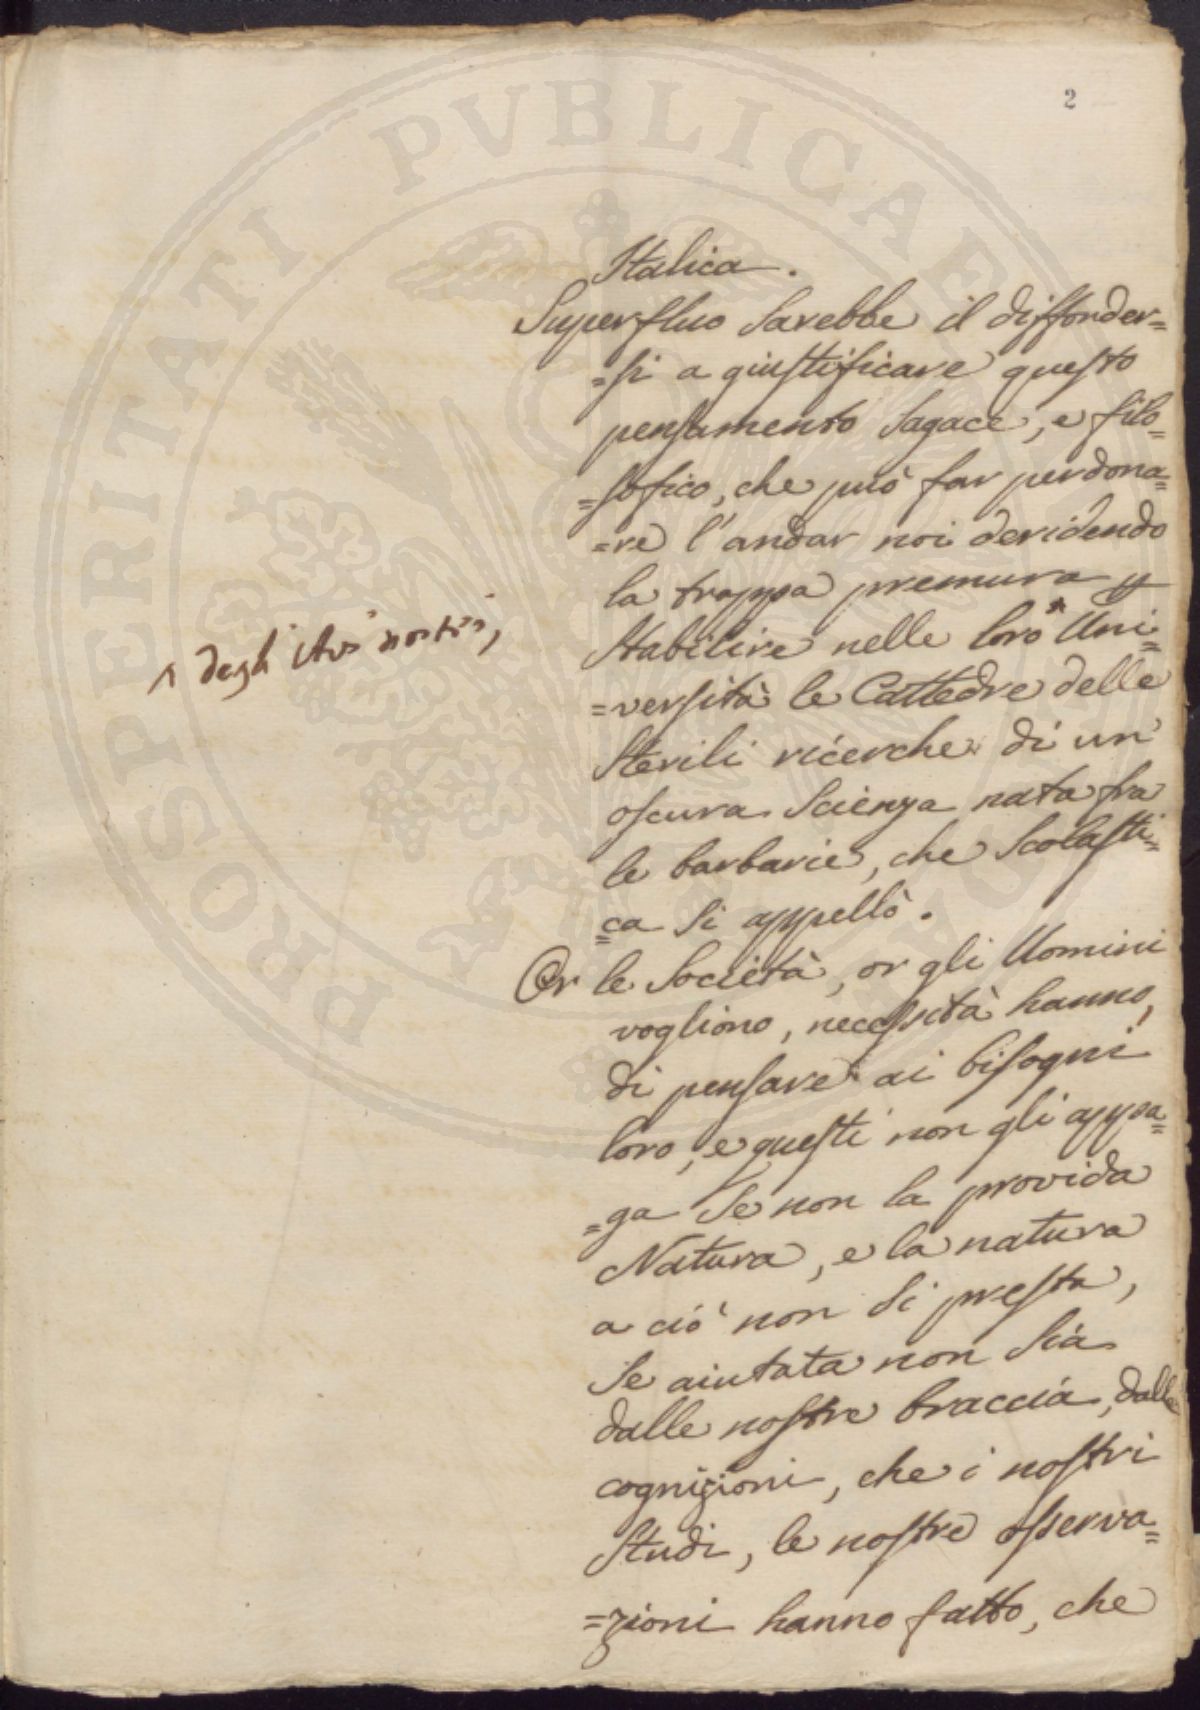 2
Italica.
Superfluo sarebbe il diffonder=
=si a giustificare questo
pensamento sagace, e filo=
=sofico, che può far perdona=
=re l'andar noi deridendo
la troppa premura
stabilire nelle loro ^ Uni=
=versità le Cattedre delle
sterili ricerche di un'
oscura scienza nata fra
le barbarie, che scolasti=
=ca si appellò.
Or le Società, or gli Uomini
vogliono, necessità hanno,
di pensare ai bisogni
loro, e questi non gli appa=
=ga se non la provida
Natura, e la natura
a ciò non si presta,
se aiutata non sia
dalle nostre braccia, dalle
cognizioni, che i nostri
studi, le nostre osserva=
=zioni hanno fatto, che
^ degli Avi nostri,
PROSPERITATI PVBLICAE